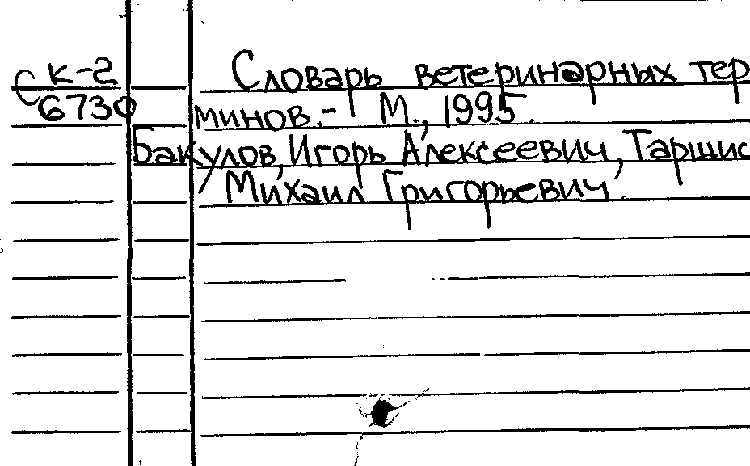 С К-2 Словарь ветеринарных тер
6730 минов.- М., 1995.
Бакулов, Игорь Алексеевич, Таршис
Михаил Григорьевич.